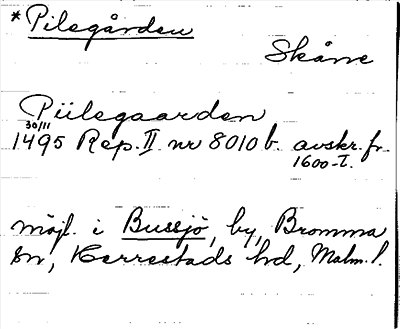 * Pilegården
Skåne
Piilegaarden
30/11
1495 Rep. II nr 8010 b. avskr. fr.
1600-t.
möjl. i Bussjö, by, Bromma
sn, Herrestads hd, Malm. l.